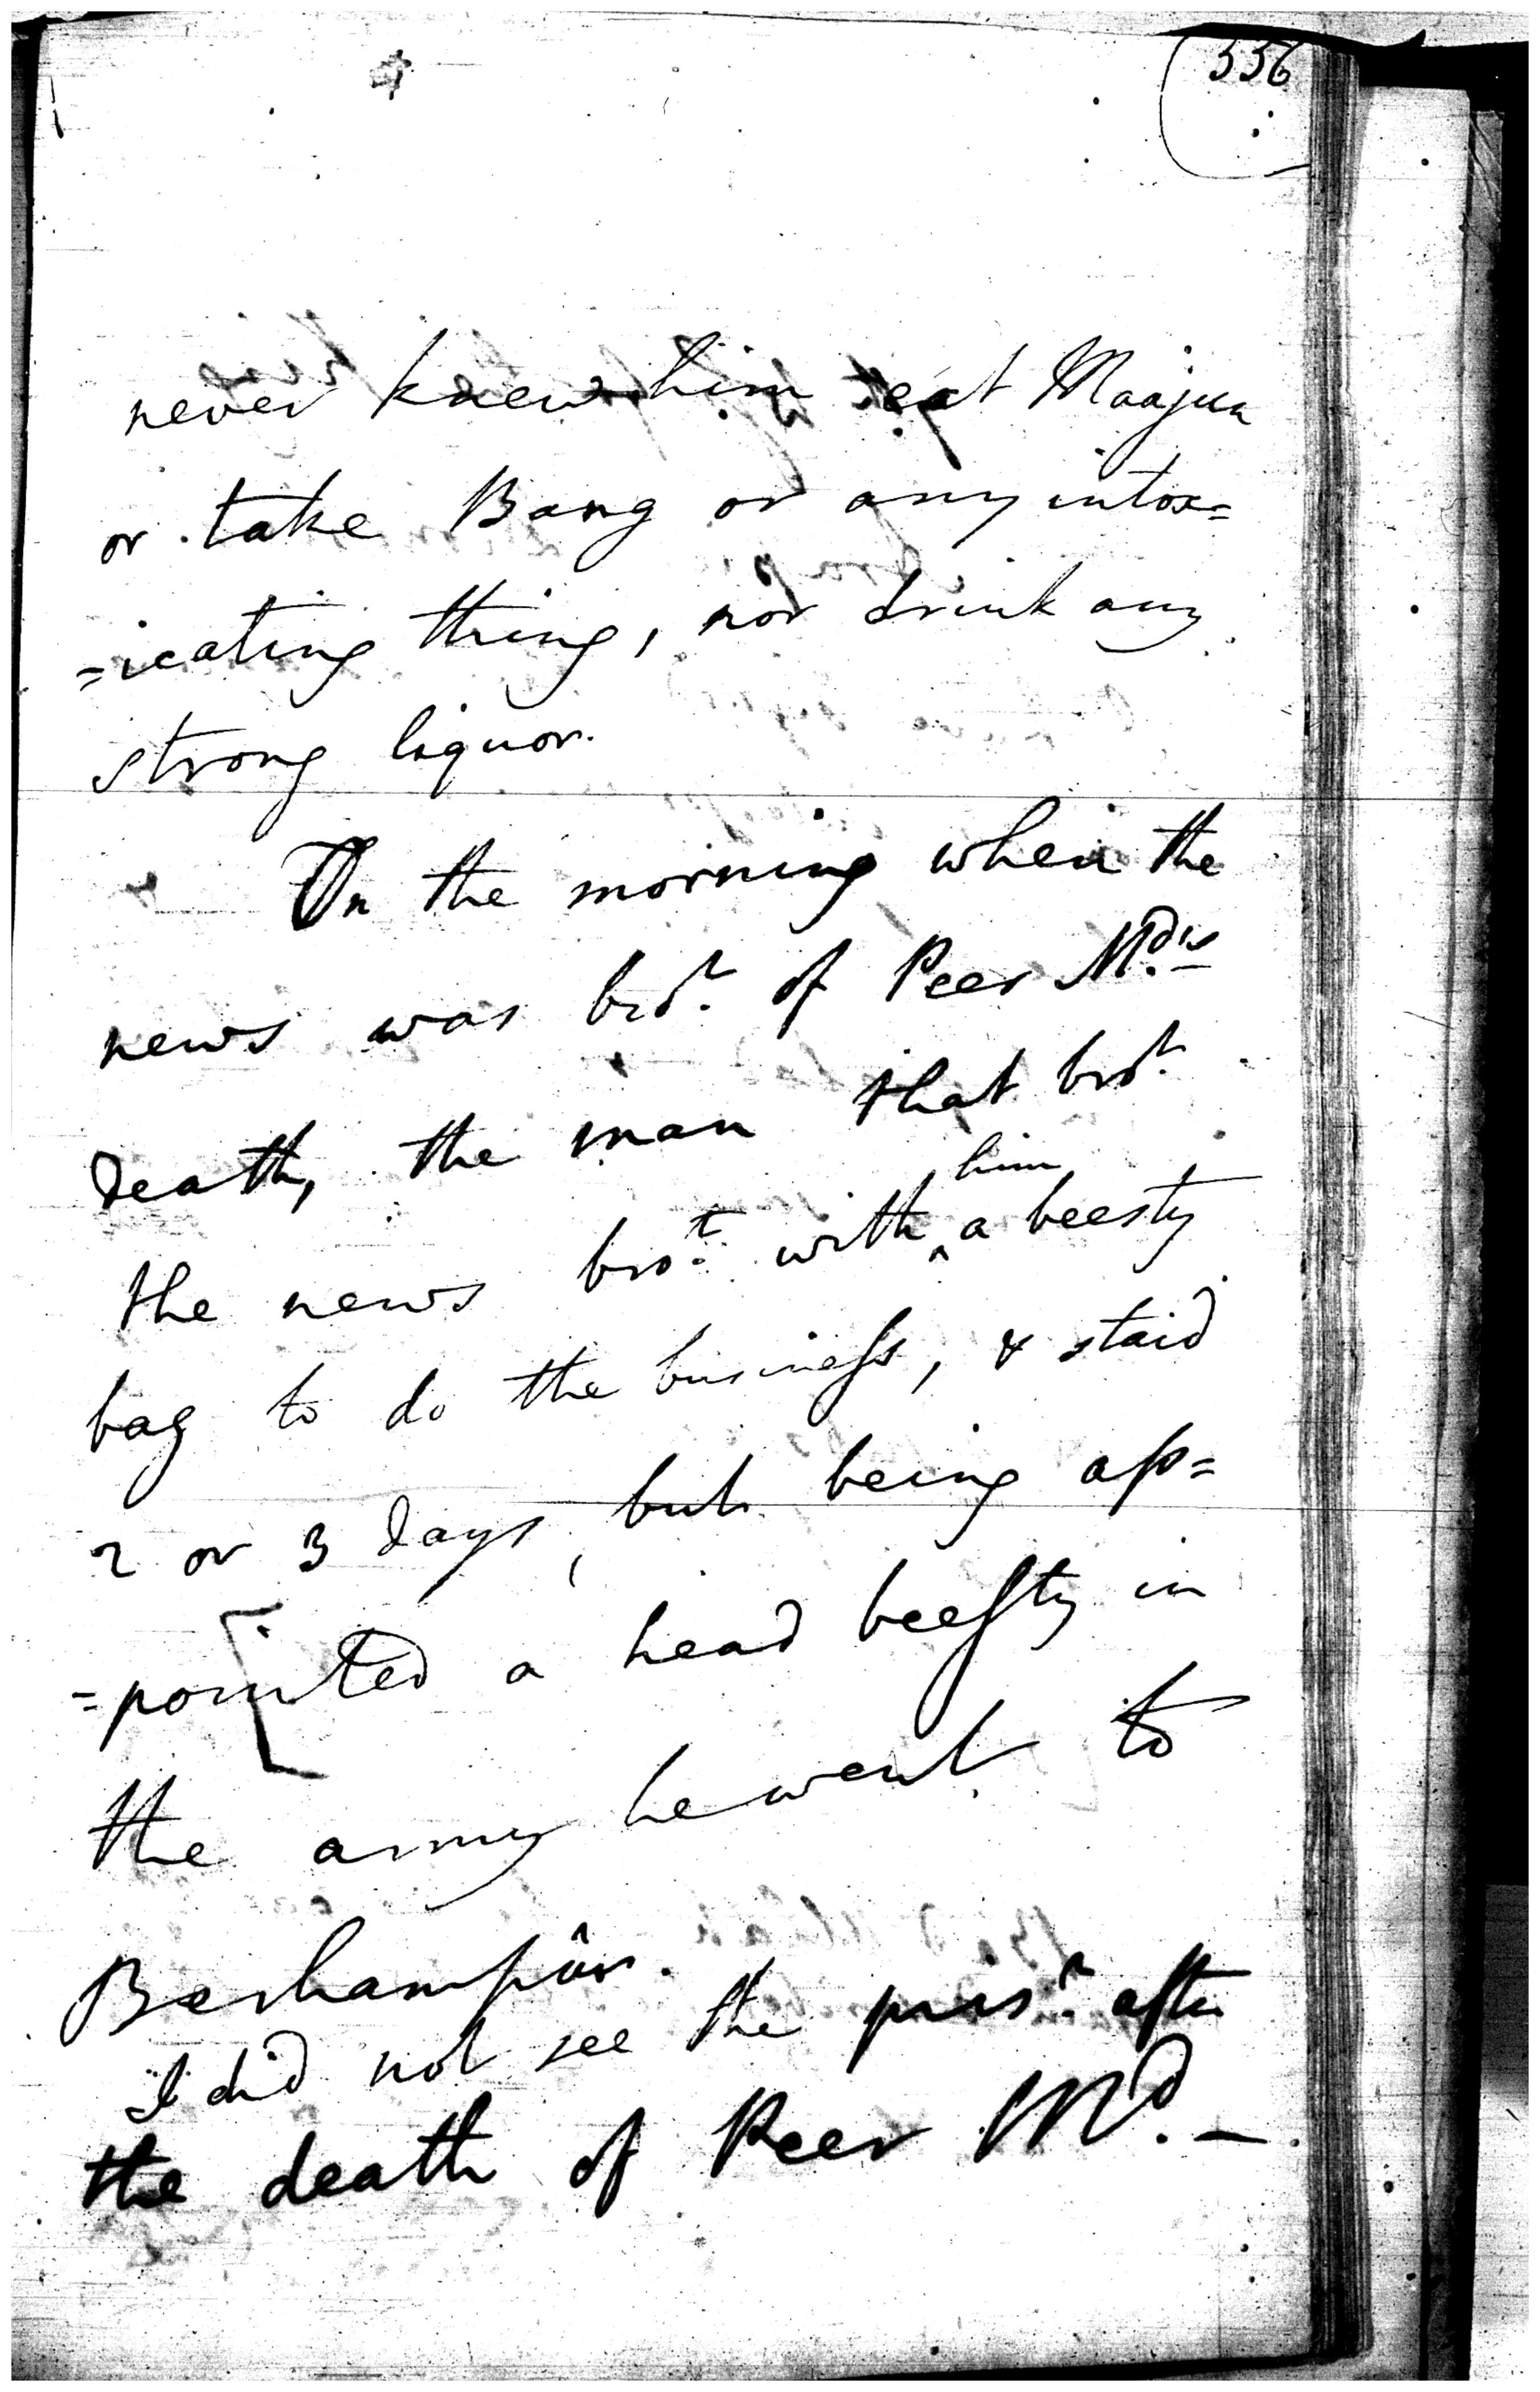 336
never knew him eat Maajun
or take Bang or any intox=
=icating thing, nor drink any
strong liquor.
On the morning when the
news was brot. of Peer Md's
death, the man that brot.
the news brot. with ^him a beesty
bag to do the business, & staid
2 or 3 days, but being ap=
=pointed a head beesty in
the army he went to
Berhampôr.
I did not see the prisr. after
the death of Peer Md. —